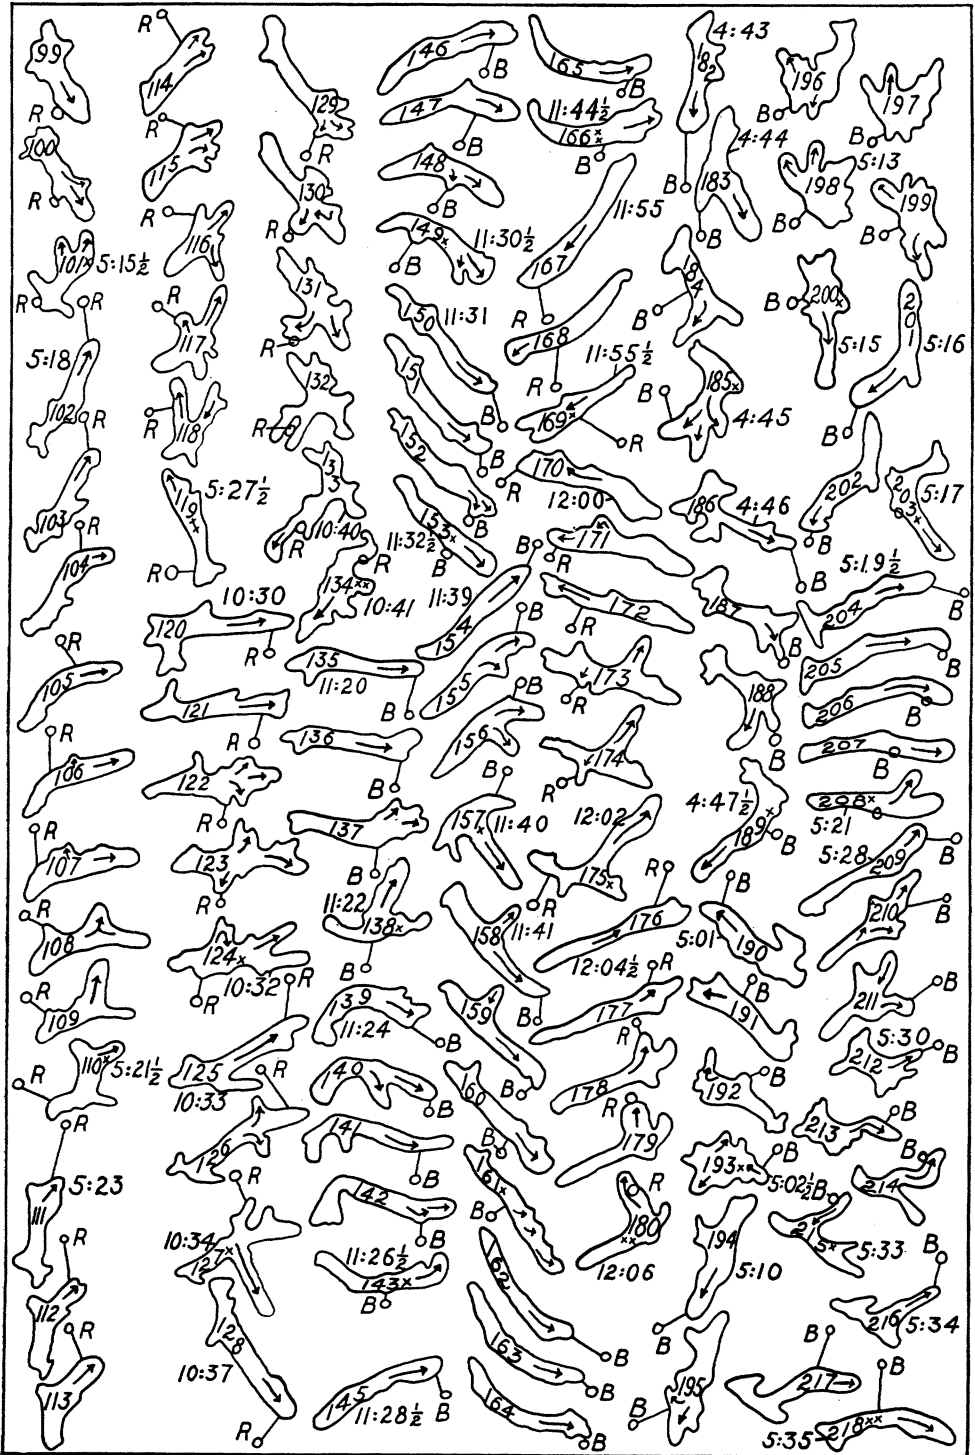 99
R
100
R
101x 5:15½
R
R
5:18
102
R
103
R
104
R
105
R
106
R
107
R
108
R
109
R
110x 5:21½
R
R
5:23
111
R
112
R
113
R
114
R
115
R
116
R
117
R
118
119xx 5:27½
R
10:30
120
R
121
R
122
R
123
R
124x
R
10:32
R
125
10:33
R
126
R
10:34
127x
128
10:37
R
129
R
130
R
131
R
132
R
133
R
10:40
R
134xx
10:41
135
11:20
B
136
B
137
B
11:22
138x
B
139
11:24
B
140
B
141
B
142
B
11:26½
143x
B
145
11:28½
B
146
B
147
B
148
B
149x 11:30½
B
150 11:31
B
151
B
152
B
153x
11:32½
B
B
11:39
154
B
155
B
156
B
157x 11:40
158 11:41
B
159
B
160
B
161x
B
162
B
163
B
164
B
165
B
11:44½
166xx
B
11:55
167
R
168
R
11:55½
169x
R
170
R
12:00
171
R
172
R
173
R
174
R
12:02
175x
R
R
176
12:04½
R
177
R
178
R
179
R
180
xx
12:06
4:43
182
B
4:44
183
B
184
B
185x
B
4:45
186 4:46
B
187
B
188
B
4:47½
189x
B
B
5:01
190
B
191
B
192
B
193xx
5:02½
194
5:10
B
195
B
196
B
197
B
5:13
198
B
199
B
200x
B
5:15
201
5:16
B
202
B
203x
5:17
5:19½
204
B
205
B
206
B
207
B
208x
5:21
5:28
209
B
210
B
211
B
5:30
212
B
213
B
214
B
B
215x 5:33
B
216 5:34
B
217
B
5:35 218xx